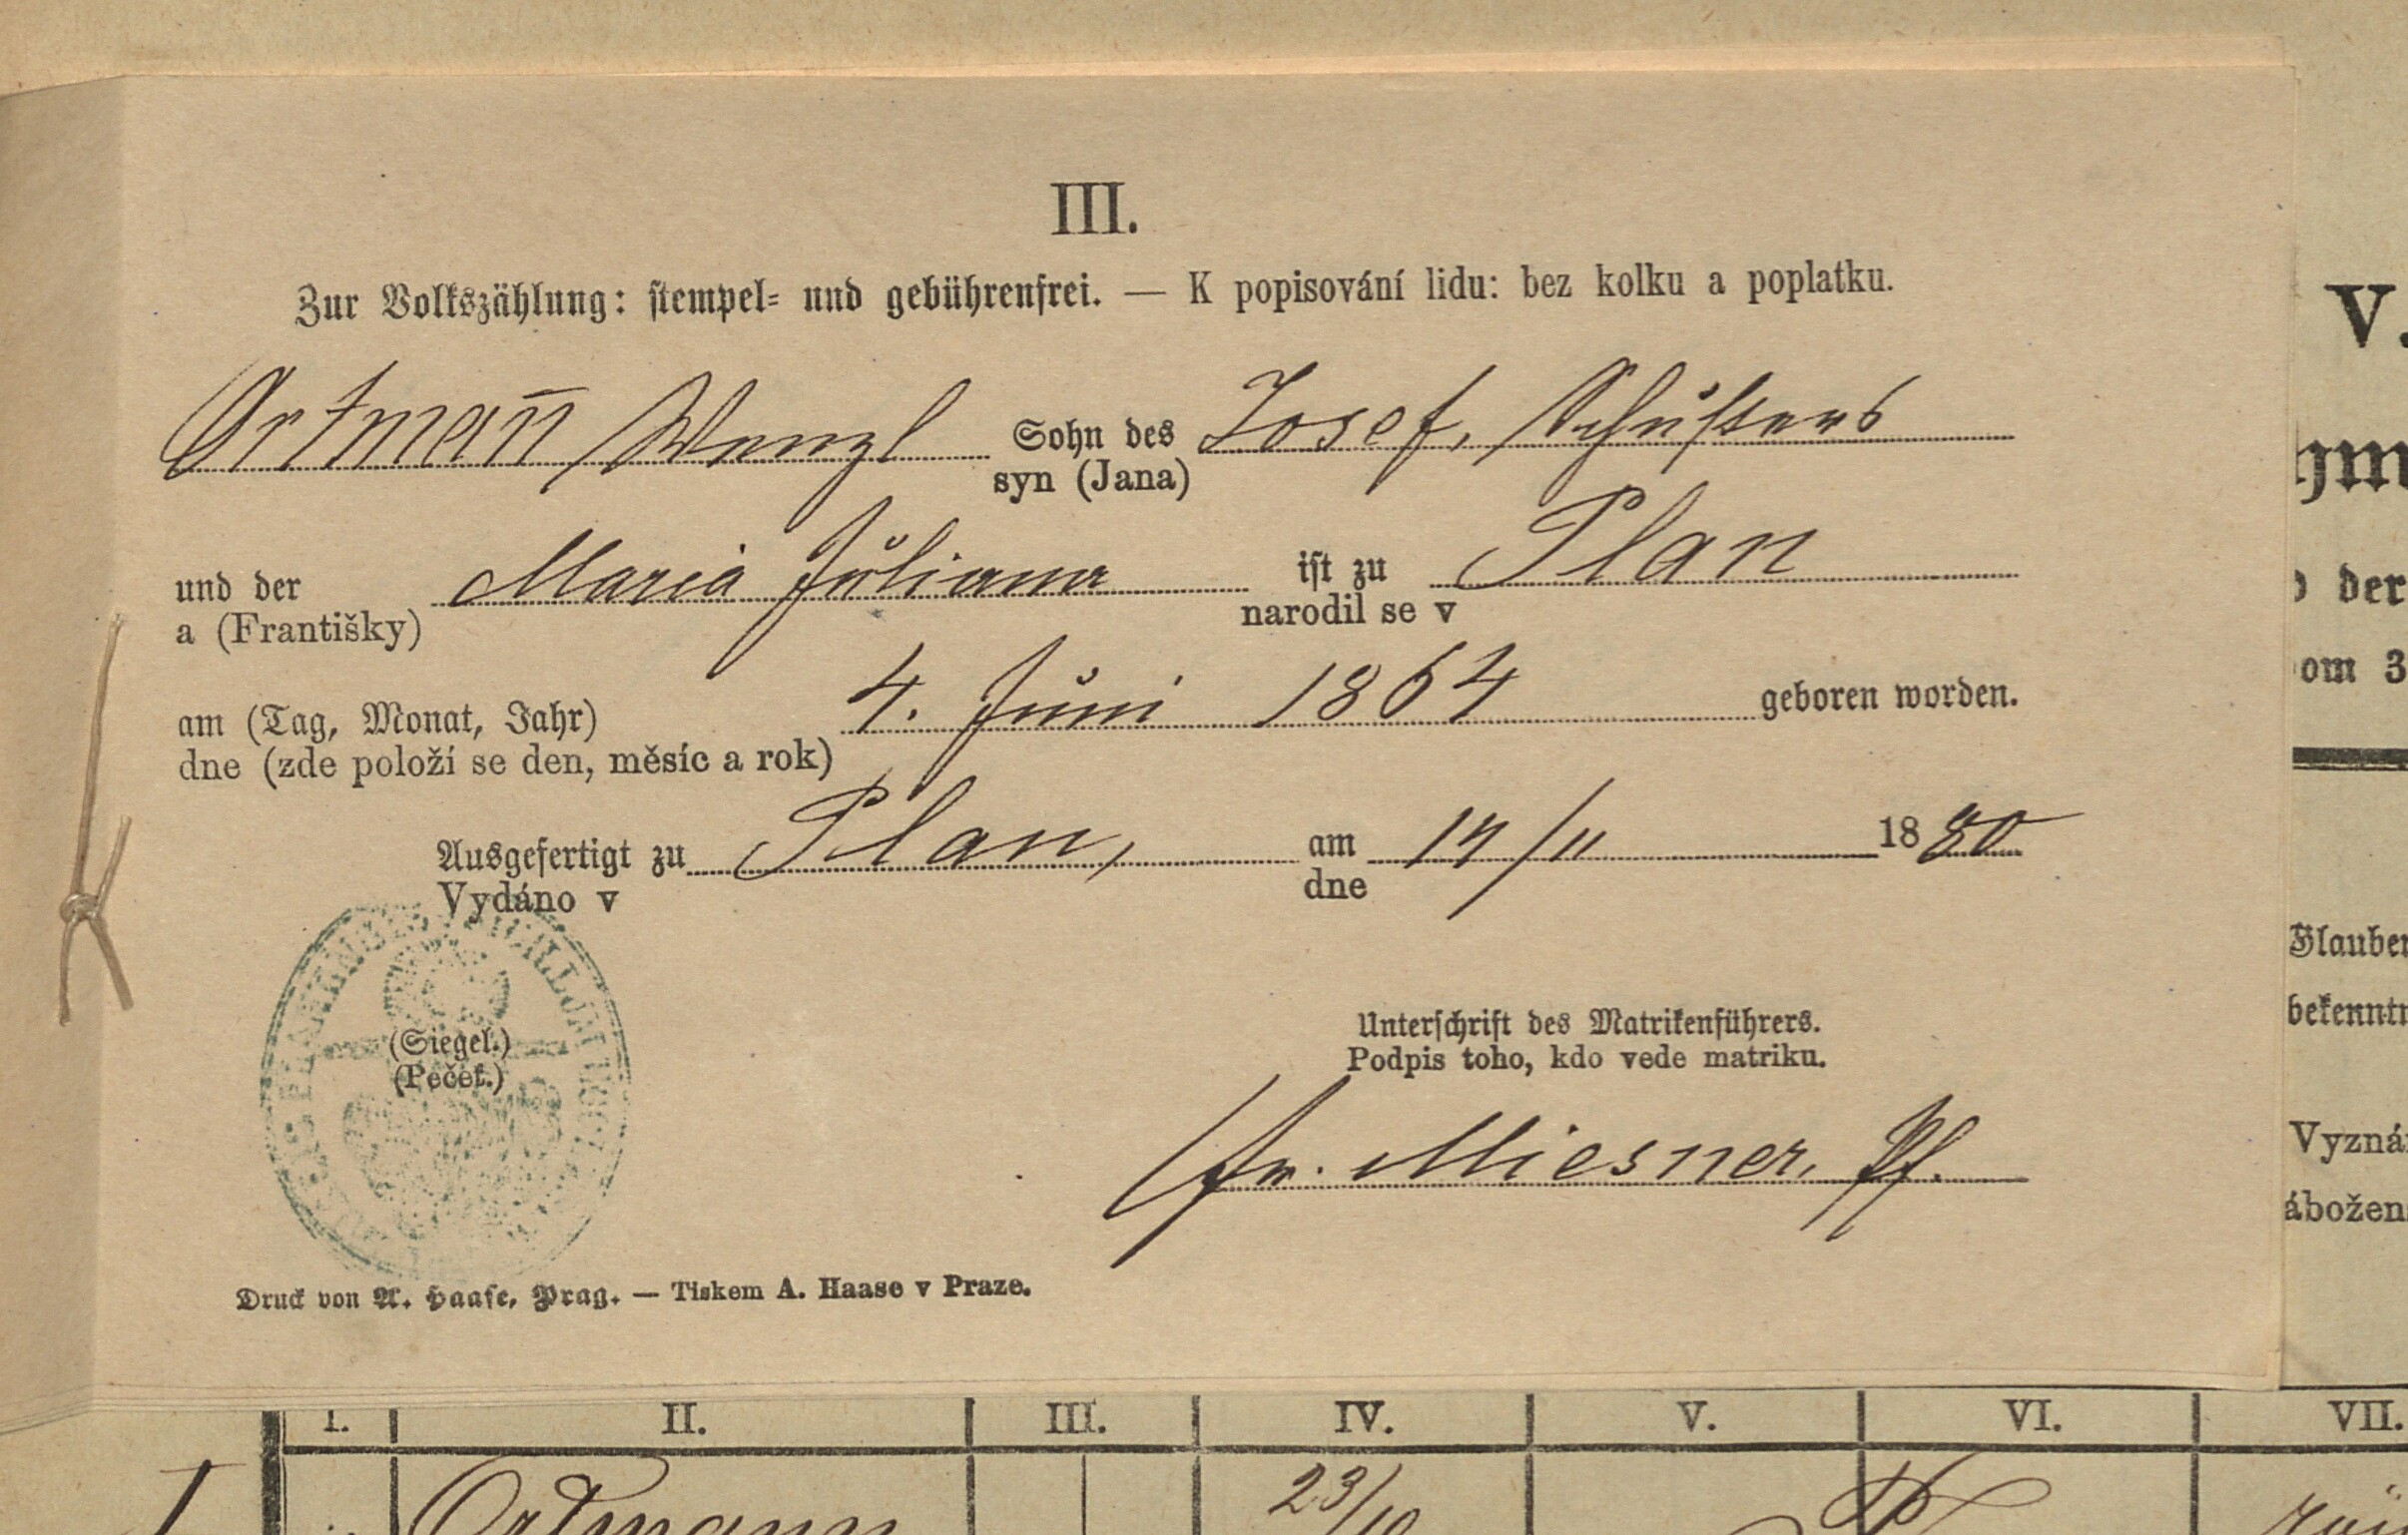 III.
Zur Volkszählung: stempel- und gebührenfrei. — K popisování lidu: bez kolku a poplatku.
Ortman̄ Wenzl Sohn des Josef, Schusters
syn (Jana)
und der Maria Juliana ist zu Plan
a (Františky) narodil se v
am (Tag, Monat, Jahr) 4. Juni 1864 geboren worden.
dne (zde položí se den, měsíc a rok)
Ausgefertigt zu Plan, am 17/11 1880
Vydáno v dne
(Siegel.)
(Pečeť.)
Unterschrift des Matrikenführers.
Podpis toho, kdo vede matriku.
Fr. Miesner, Pf.
Druck von A. Haase, Prag. — Tiskem A. Haase v Praze.
V.
der
om 3
Glauben
bekennt
Vyzná
ábožen
I. II. III. IV. V. VI. VII.
Ortmann 23/10